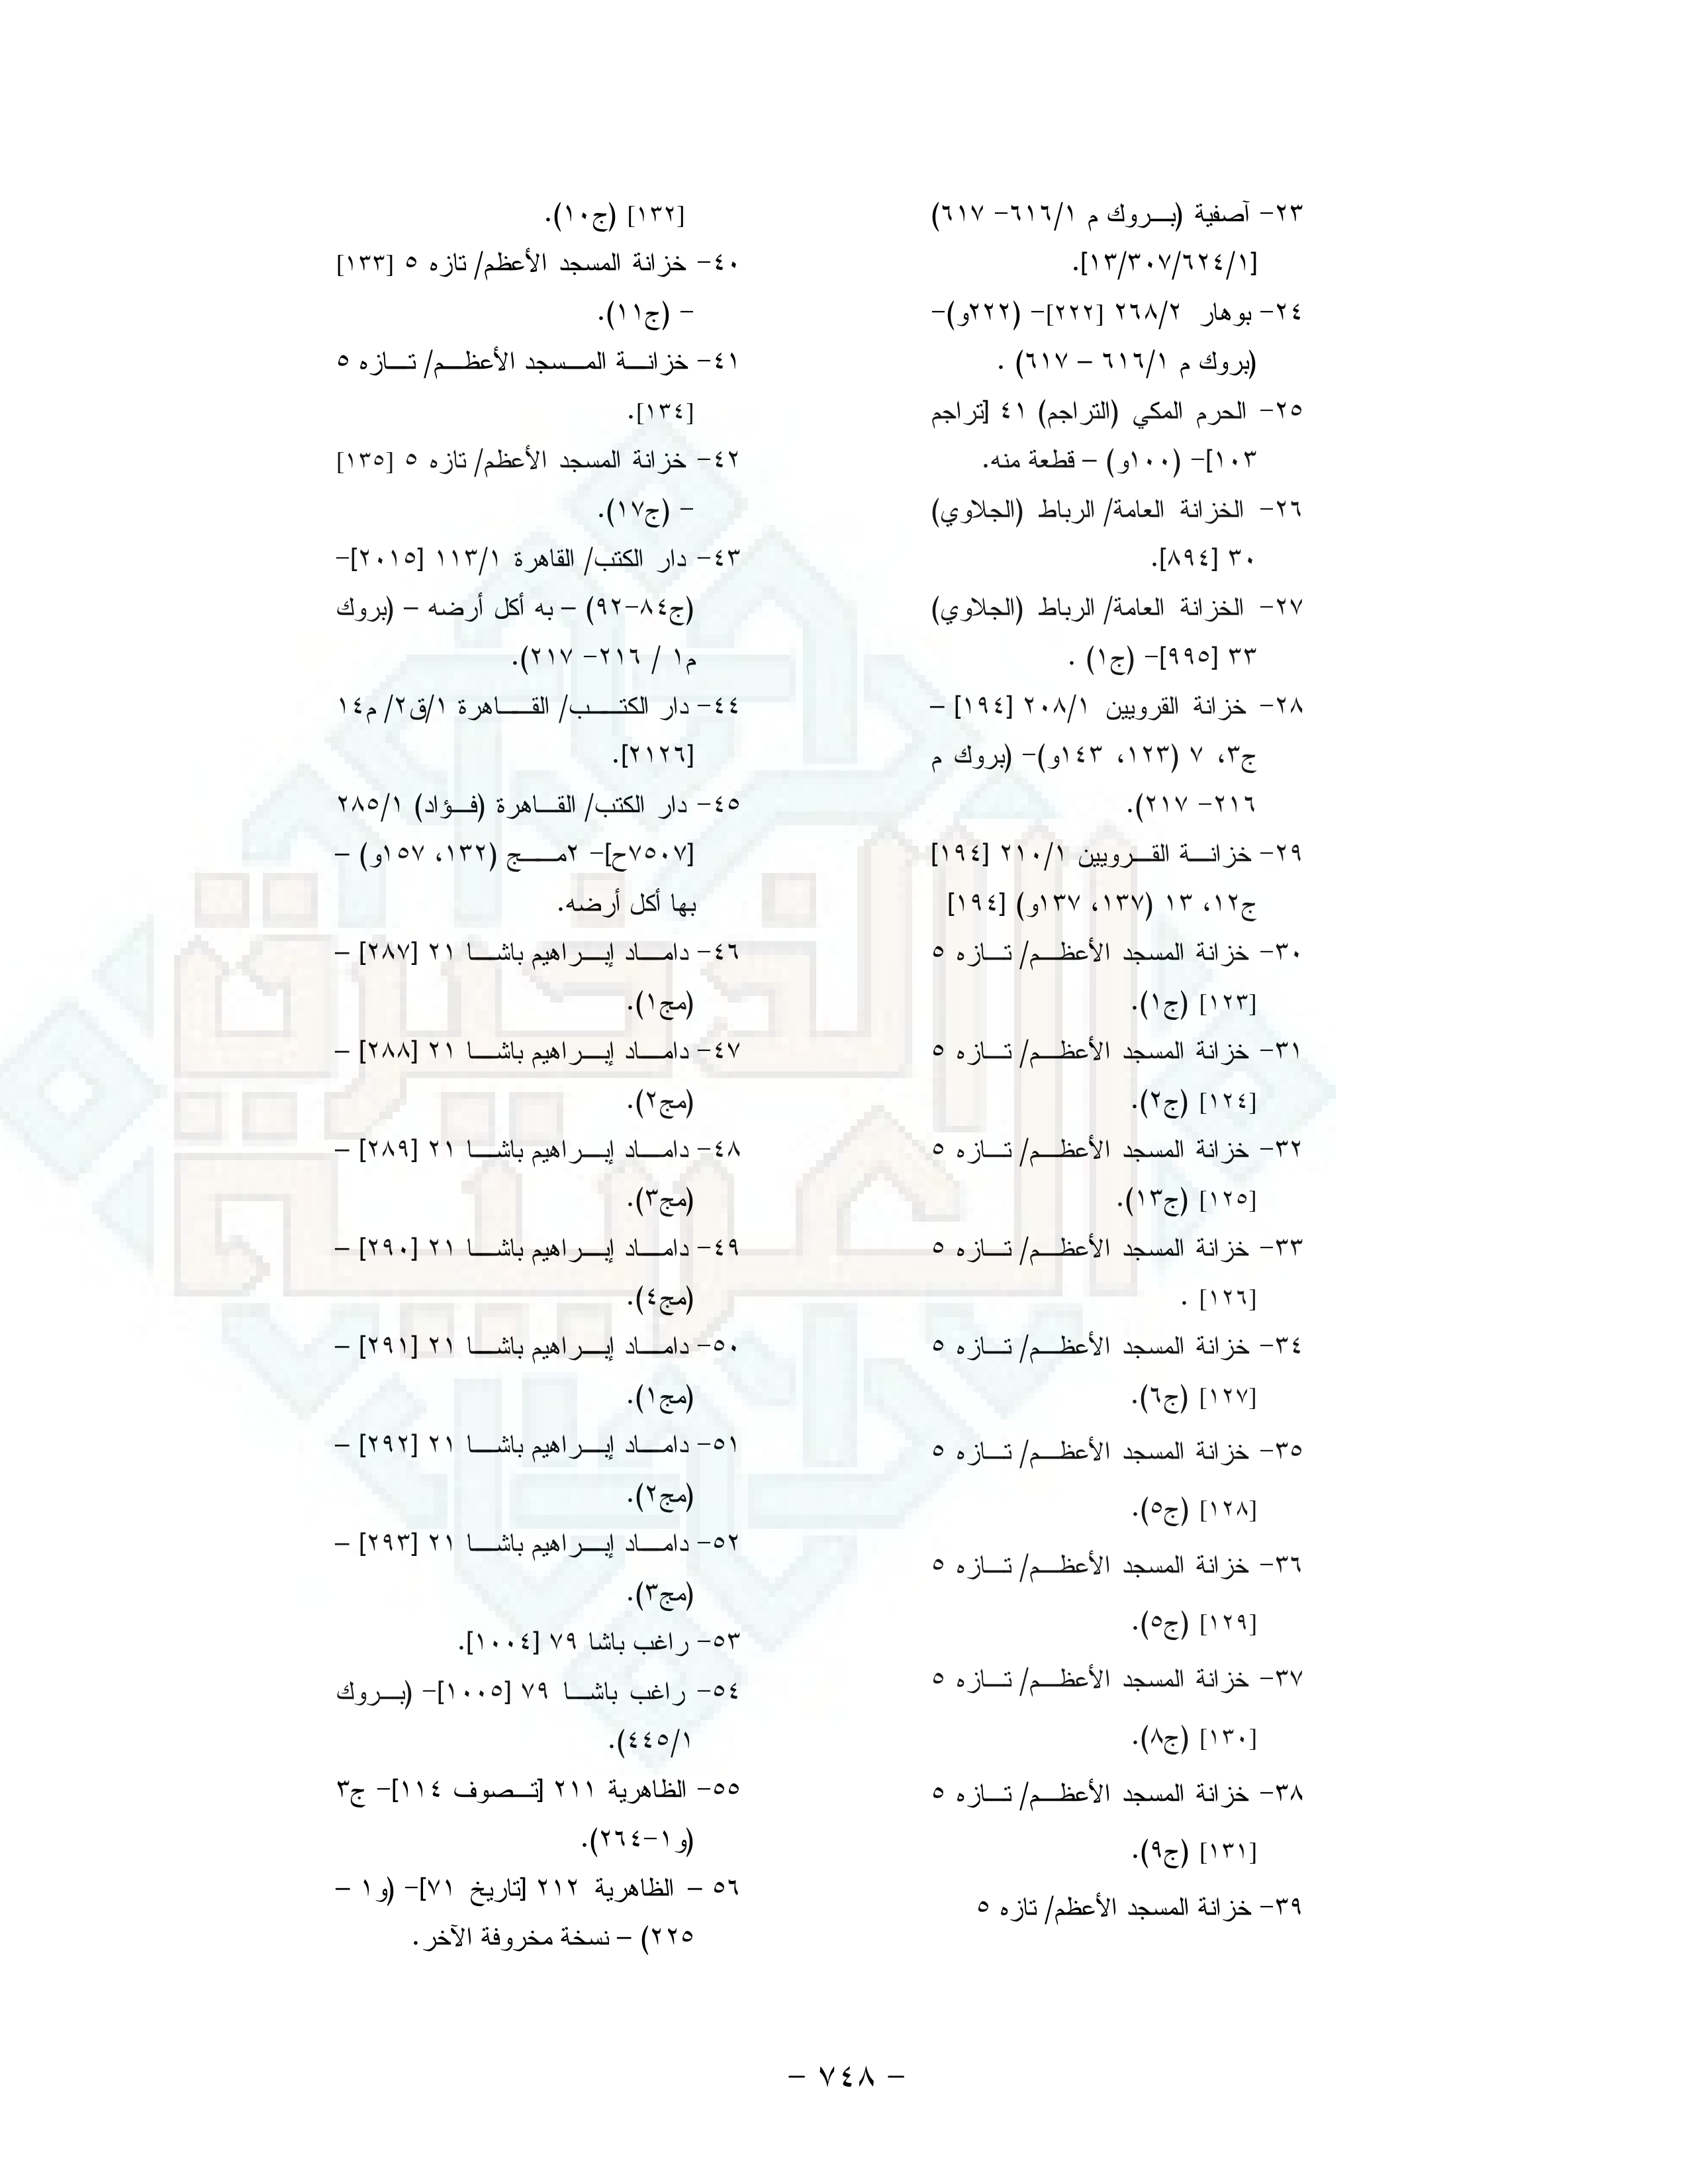 ٢٣- آصفية (بروك م ٦١٦/١- ٦١٧)
[١٣/٣٠٧/٦٢٤/١].
٢٤- بوهار ٢٦٨/٢ [٢٢٢]- (٢٢٢و)-
(بروك م ٦١٦/١ – ٦١٧) .
٢٥- الحرم المكي (التراجم) ٤١ [تراجم
١٠٣]- (١٠٠و) – قطعة منه.
٢٦- الخزانة العامة/ الرباط (الجلاوي)
٣٠ [٨٩٤].
٢٧- الخزانة العامة/ الرباط (الجلاوي)
٣٣ [٩٩٥]- (ج١) .
٢٨- خزانة القرويين ٢٠٨/١ [١٩٤] –
ج٣، ٧ (١٢٣، ١٤٣و)- (بروك م
٢١٦- ٢١٧).
٢٩- خزانة القرويين ٢١٠/١ [١٩٤]
ج١٢، ١٣ (١٣٧، ١٣٧و) [١٩٤]
٣٠- خزانة المسجد الأعظم/ تازه ٥
[١٢٣] (ج١).
٣١- خزانة المسجد الأعظم/ تازه ٥
[١٢٤] (ج٢).
٣٢- خزانة المسجد الأعظم/ تازه ٥
[١٢٥] (ج١٣).
٣٣- خزانة المسجد الأعظم/ تازه ٥
[١٢٦] .
٣٤- خزانة المسجد الأعظم/ تازه ٥
[١٢٧] (ج٦).
٣٥- خزانة المسجد الأعظم/ تازه ٥
[١٢٨] (ج٥).
٣٦- خزانة المسجد الأعظم/ تازه ٥
[١٢٩] (ج٥).
٣٧- خزانة المسجد الأعظم/ تازه ٥
[١٣٠] (ج٨).
٣٨- خزانة المسجد الأعظم/ تازه ٥
[١٣١] (ج٩).
٣٩- خزانة المسجد الأعظم/ تازه ٥
[١٣٢] (ج١٠).
٤٠- خزانة المسجد الأعظم/ تازه ٥ [١٣٣]
– (ج١١).
٤١- خزانة المسجد الأعظم/ تازه ٥
[١٣٤].
٤٢- خزانة المسجد الأعظم/ تازه ٥ [١٣٥]
– (ج١٧).
٤٣- دار الكتب/ القاهرة ١١٣/١ [٢٠١٥]-
(ج٨٤-٩٢) – به أكل أرضه – (بروك
م١ / ٢١٦- ٢١٧).
٤٤- دار الكتب/ القاهرة ١/ق٢/ م١٤
[٢١٢٦].
٤٥- دار الكتب/ القاهرة (فؤاد) ٢٨٥/١
[٧٥٠٧ح]- ٢مج (١٣٢، ١٥٧و) –
بها أكل أرضه.
٤٦- داماد إبراهيم باشا ٢١ [٢٨٧] –
(مج١).
٤٧- داماد إبراهيم باشا ٢١ [٢٨٨] –
(مج٢).
٤٨- داماد إبراهيم باشا ٢١ [٢٨٩] –
(مج٣).
٤٩- داماد إبراهيم باشا ٢١ [٢٩٠] –
(مج٤).
٥٠- داماد إبراهيم باشا ٢١ [٢٩١] –
(مج١).
٥١- داماد إبراهيم باشا ٢١ [٢٩٢] –
(مج٢).
٥٢- داماد إبراهيم باشا ٢١ [٢٩٣] –
(مج٣).
٥٣- راغب باشا ٧٩ [١٠٠٤].
٥٤- راغب باشا ٧٩ [١٠٠٥]- (بروك
٤٤٥/١).
٥٥- الظاهرية ٢١١ [تصوف ١١٤]- ج٣
(و١-٢٦٤).
٥٦ – الظاهرية ٢١٢ [تاريخ ٧١]- (و١ –
٢٢٥) – نسخة مخروفة الآخر.
– ٧٤٨ –
الذخيرة
العربية